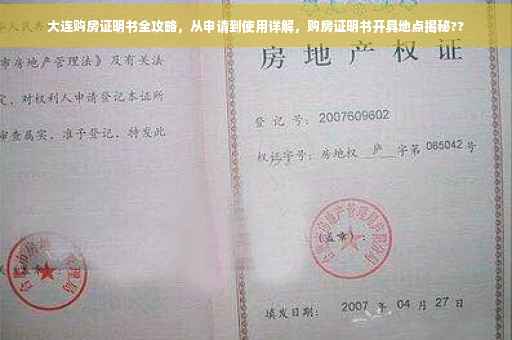 大连购房证明书全攻略，从申请到使用详解，购房证明书开具地点揭秘??
市房地产管理法》及有关法
定，对权利人申请登记本证所
审查属实，准予登记，特发此
房地产权
登 记 号：2007609602
权证字号：房地权 庐 字第 085042 号
(盖章)：
填发日期： 2007 年 04 月 27 日